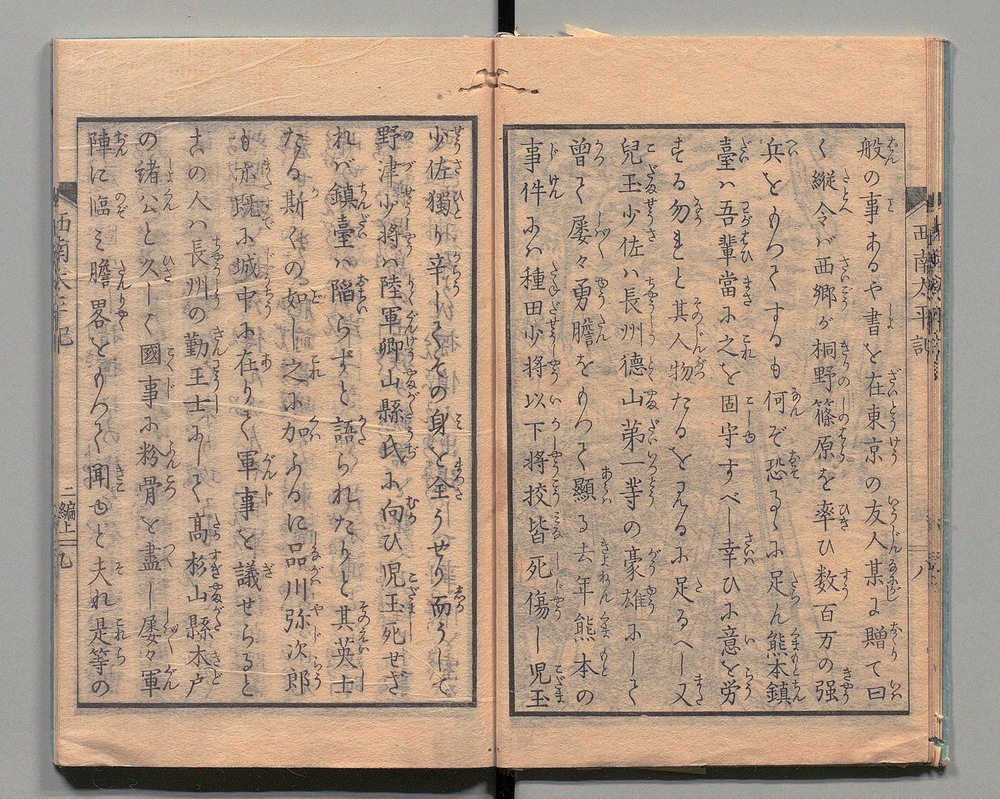 般の事あるや書を在東京の友人某に贈て曰
く縦令バ西郷が桐野篠原を率ひ数百万の强
兵をもつてするも何ぞ恐るゝに足ん熊本鎮
臺ハ吾輩當に之を固守すべし幸ひに意を労
する勿れと其人物たるを見るに足るべし又
兒玉少佐ハ長州徳山第一等の豪雄にして
曾て屡々勇膽をもつて顯る去年熊本の
事件にハ種田少将以下将挍皆死傷し児玉
少佐獨り辛してその身を全うせり而うして
野津少将ハ陸軍卿山縣氏に向ひ児玉死せざ
れバ鎮臺ハ陥らずと語られたりと其英士
たる斯くの如し之に加ふるに品川弥次郎
も亦既に城中に在りて軍事を議せらると
この人ハ長川の勤王士にして髙杉山縣木戸
の諸公と久しく國事に粉骨を盡し屡々軍
陣に臨ミ膽畧をもつて聞ゆと夫れ是等の
西南太平記
八
西南太平記
二編上